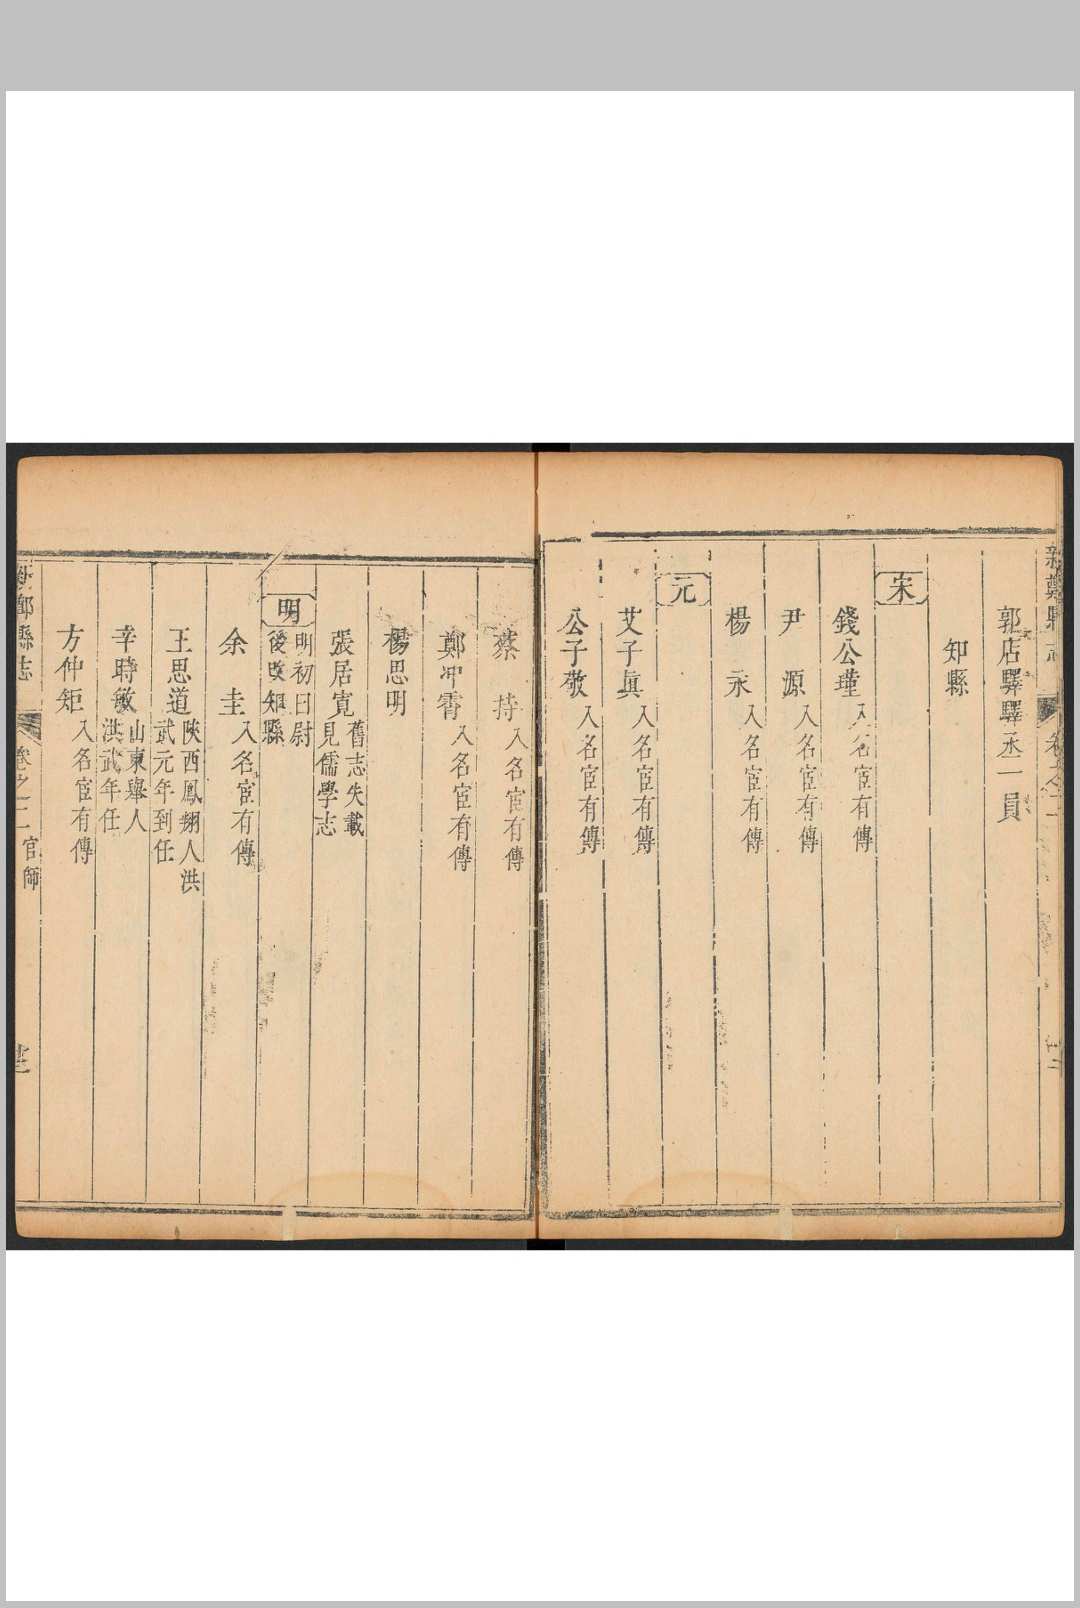 新鄭縣志
卷之二
郭店驛驛丞一員
知縣
宋
錢公瑾 入名宦有傳
尹源 入名宦有傳
楊永 入名宦有傳
元
艾子眞 入名宦有傳
公子敬 入名宦有傳
蔡持 入名宦有傳
鄭冲霄 入名宦有傳
楊思明
張居寬 舊志失載
見儒學志
明 明初曰尉
後改知縣
余圭 入名宦有傳
王思道 陝西鳳翔人洪
武元年到任
辛時敏 山東舉人
洪武年任
方仲矩 入名宦有傳
新鄭縣志
卷之二 官師